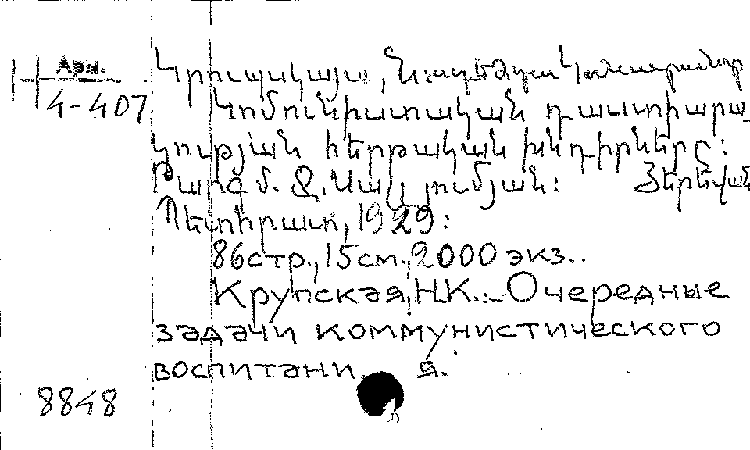 Арм.
4-407
Կրուպսկայա, Նադեժդա Կոնստանտ
Կոմունիստական դաստիարա_
կության հերթական խնդիրները:
Թարգմ. Յերեվան
Պետհրատ, 1929:
86стр., 15см., 2000 экз..
Крупская, Н.К.. Очередные
задачи коммунистического
воспитани я.
8848